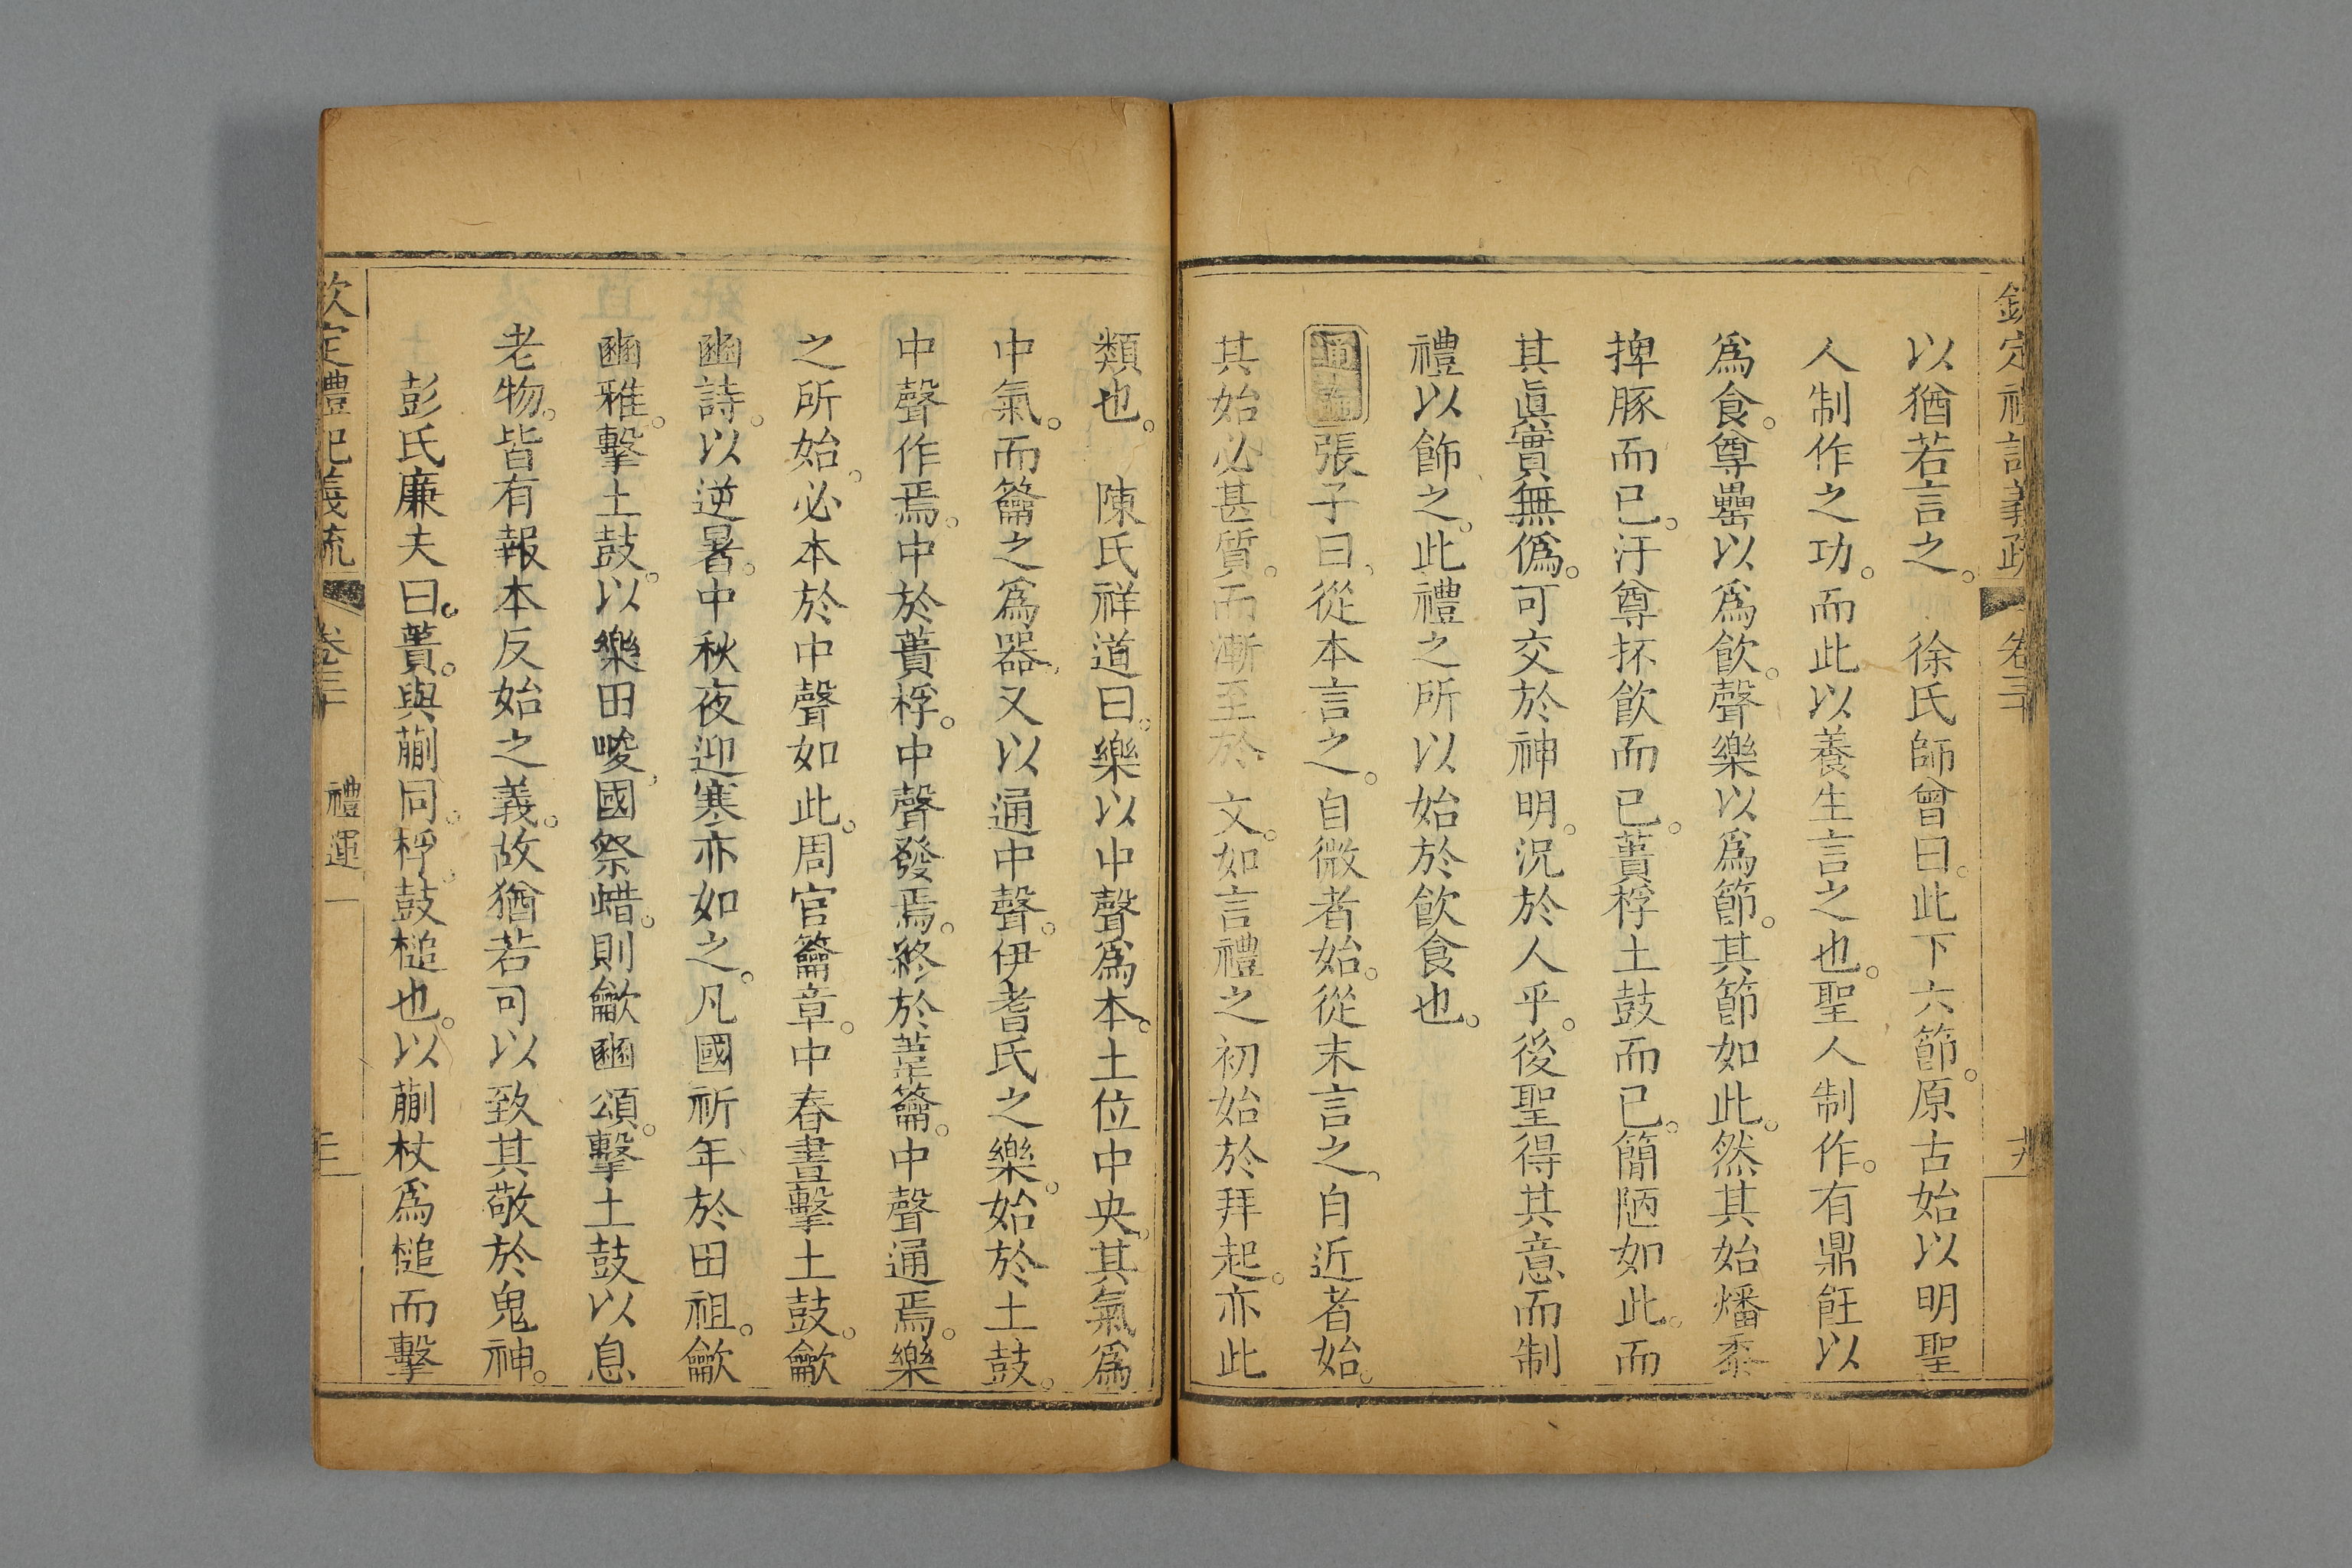 欽定禮記義疏 卷三十
以猶若言之。 徐氏師曾曰。此下六節。原古始以明聖
人制作之功。而此以養生言之也。聖人制作。有鼎飪以
爲食。尊罍以爲飲。聲樂以爲節。其節如此。然其始燔黍
捭豚而已。汙尊抔飲而已。蕢桴土鼓而已。簡陋如此。而
其眞實無僞。可交於神明。況於人乎。後聖得其意而制
禮以飾之。此禮之所以始於飲食也。
通論張子曰、從本言之。自微者始。從末言之、自近者始。
其始必甚質。而漸至於文。如言禮之初始於拜起。亦此
類也。 陳氏祥道曰。樂以中聲爲本。土位中央。其氣爲
中氣。而籥之爲器、又以通中聲。伊耆氏之樂。始於土鼓。
中聲作焉。中於蕢桴。中聲發焉。終於葦籥。中聲通焉。樂
之所始。必本於中聲如此。周官籥章。中春晝擊土鼓。龡
豳詩。以逆暑。中秋夜迎寒亦如之。凡國祈年於田祖。龡
豳雅。擊土鼓。以樂田畯、國祭蜡。則龡豳頌。擊土鼓以息
老物。皆有報本反始之義。故猶若可以致其敬於鬼神。
彭氏廉夫曰。蕢。與蒯同。桴。鼓槌也。以蒯杖爲槌而擊
欽定禮記義疏 卷三十 禮運